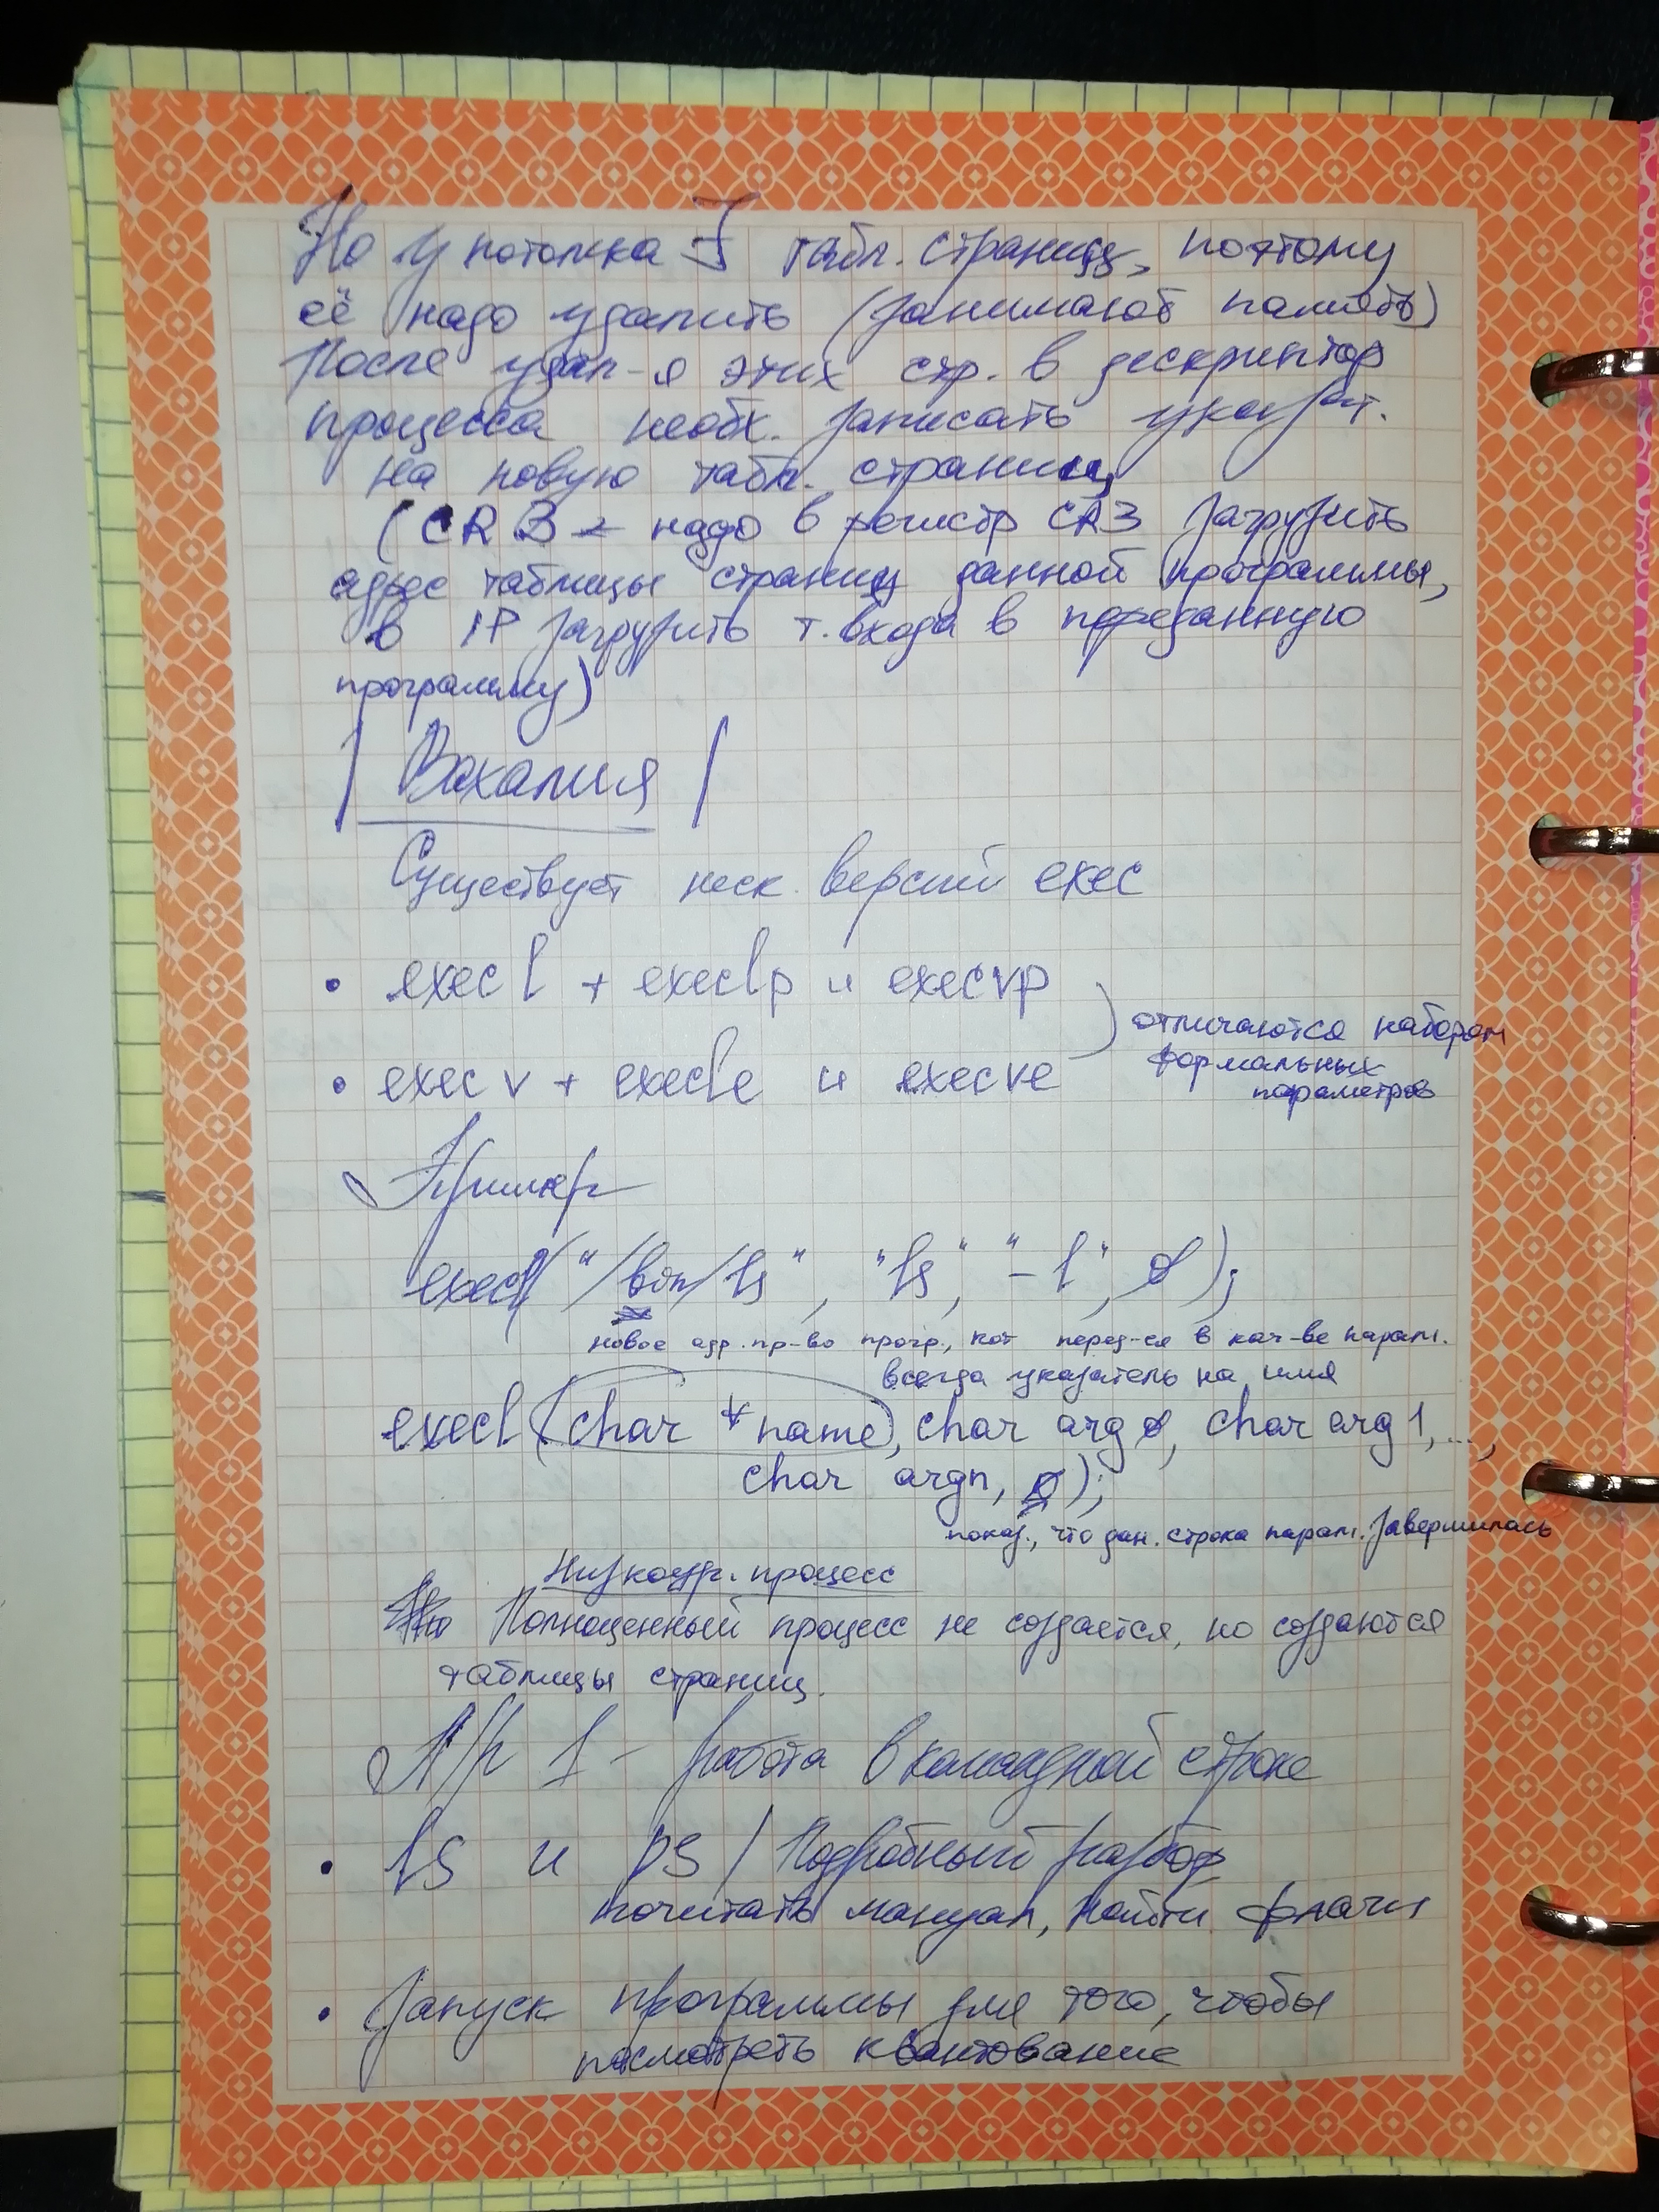 Но у потомка ∃ табл. страниц, поэтому
её надо удалить (занимают память)
После удал-я этих стр. в дескриптор
процесса необх. записать указат.
на новую табл. страниц
(CR3 - надо в регистр CR3 загрузить
адрес таблицы страниц данной программы,
в IP загрузить т. входа в переданную
программу)
| Вахалия |
Существует неск. версий exec
• execl + execlp и execvp
• execv + execle и execve
отличаются набором
формальных
параметров
Пример
execl("/bin/ls", "ls", "-l", 0);
новое адр. пр-во прогр., кот перед-ся в кач-ве парам.
всегда указатель на имя
execl(char *name, char arg0, char arg1, ...,
char argn, 0);
показ., что дан. строка парам. завершилась
Низкоур. процесс
Полноценный процесс не создается, но создаются
таблицы страниц.
Л/р 1 - работа в командной строке
• ls и ps / Подробный разбор
почитать мануал, найти флаги
• Запуск программы для того, чтобы
посмотреть квантование